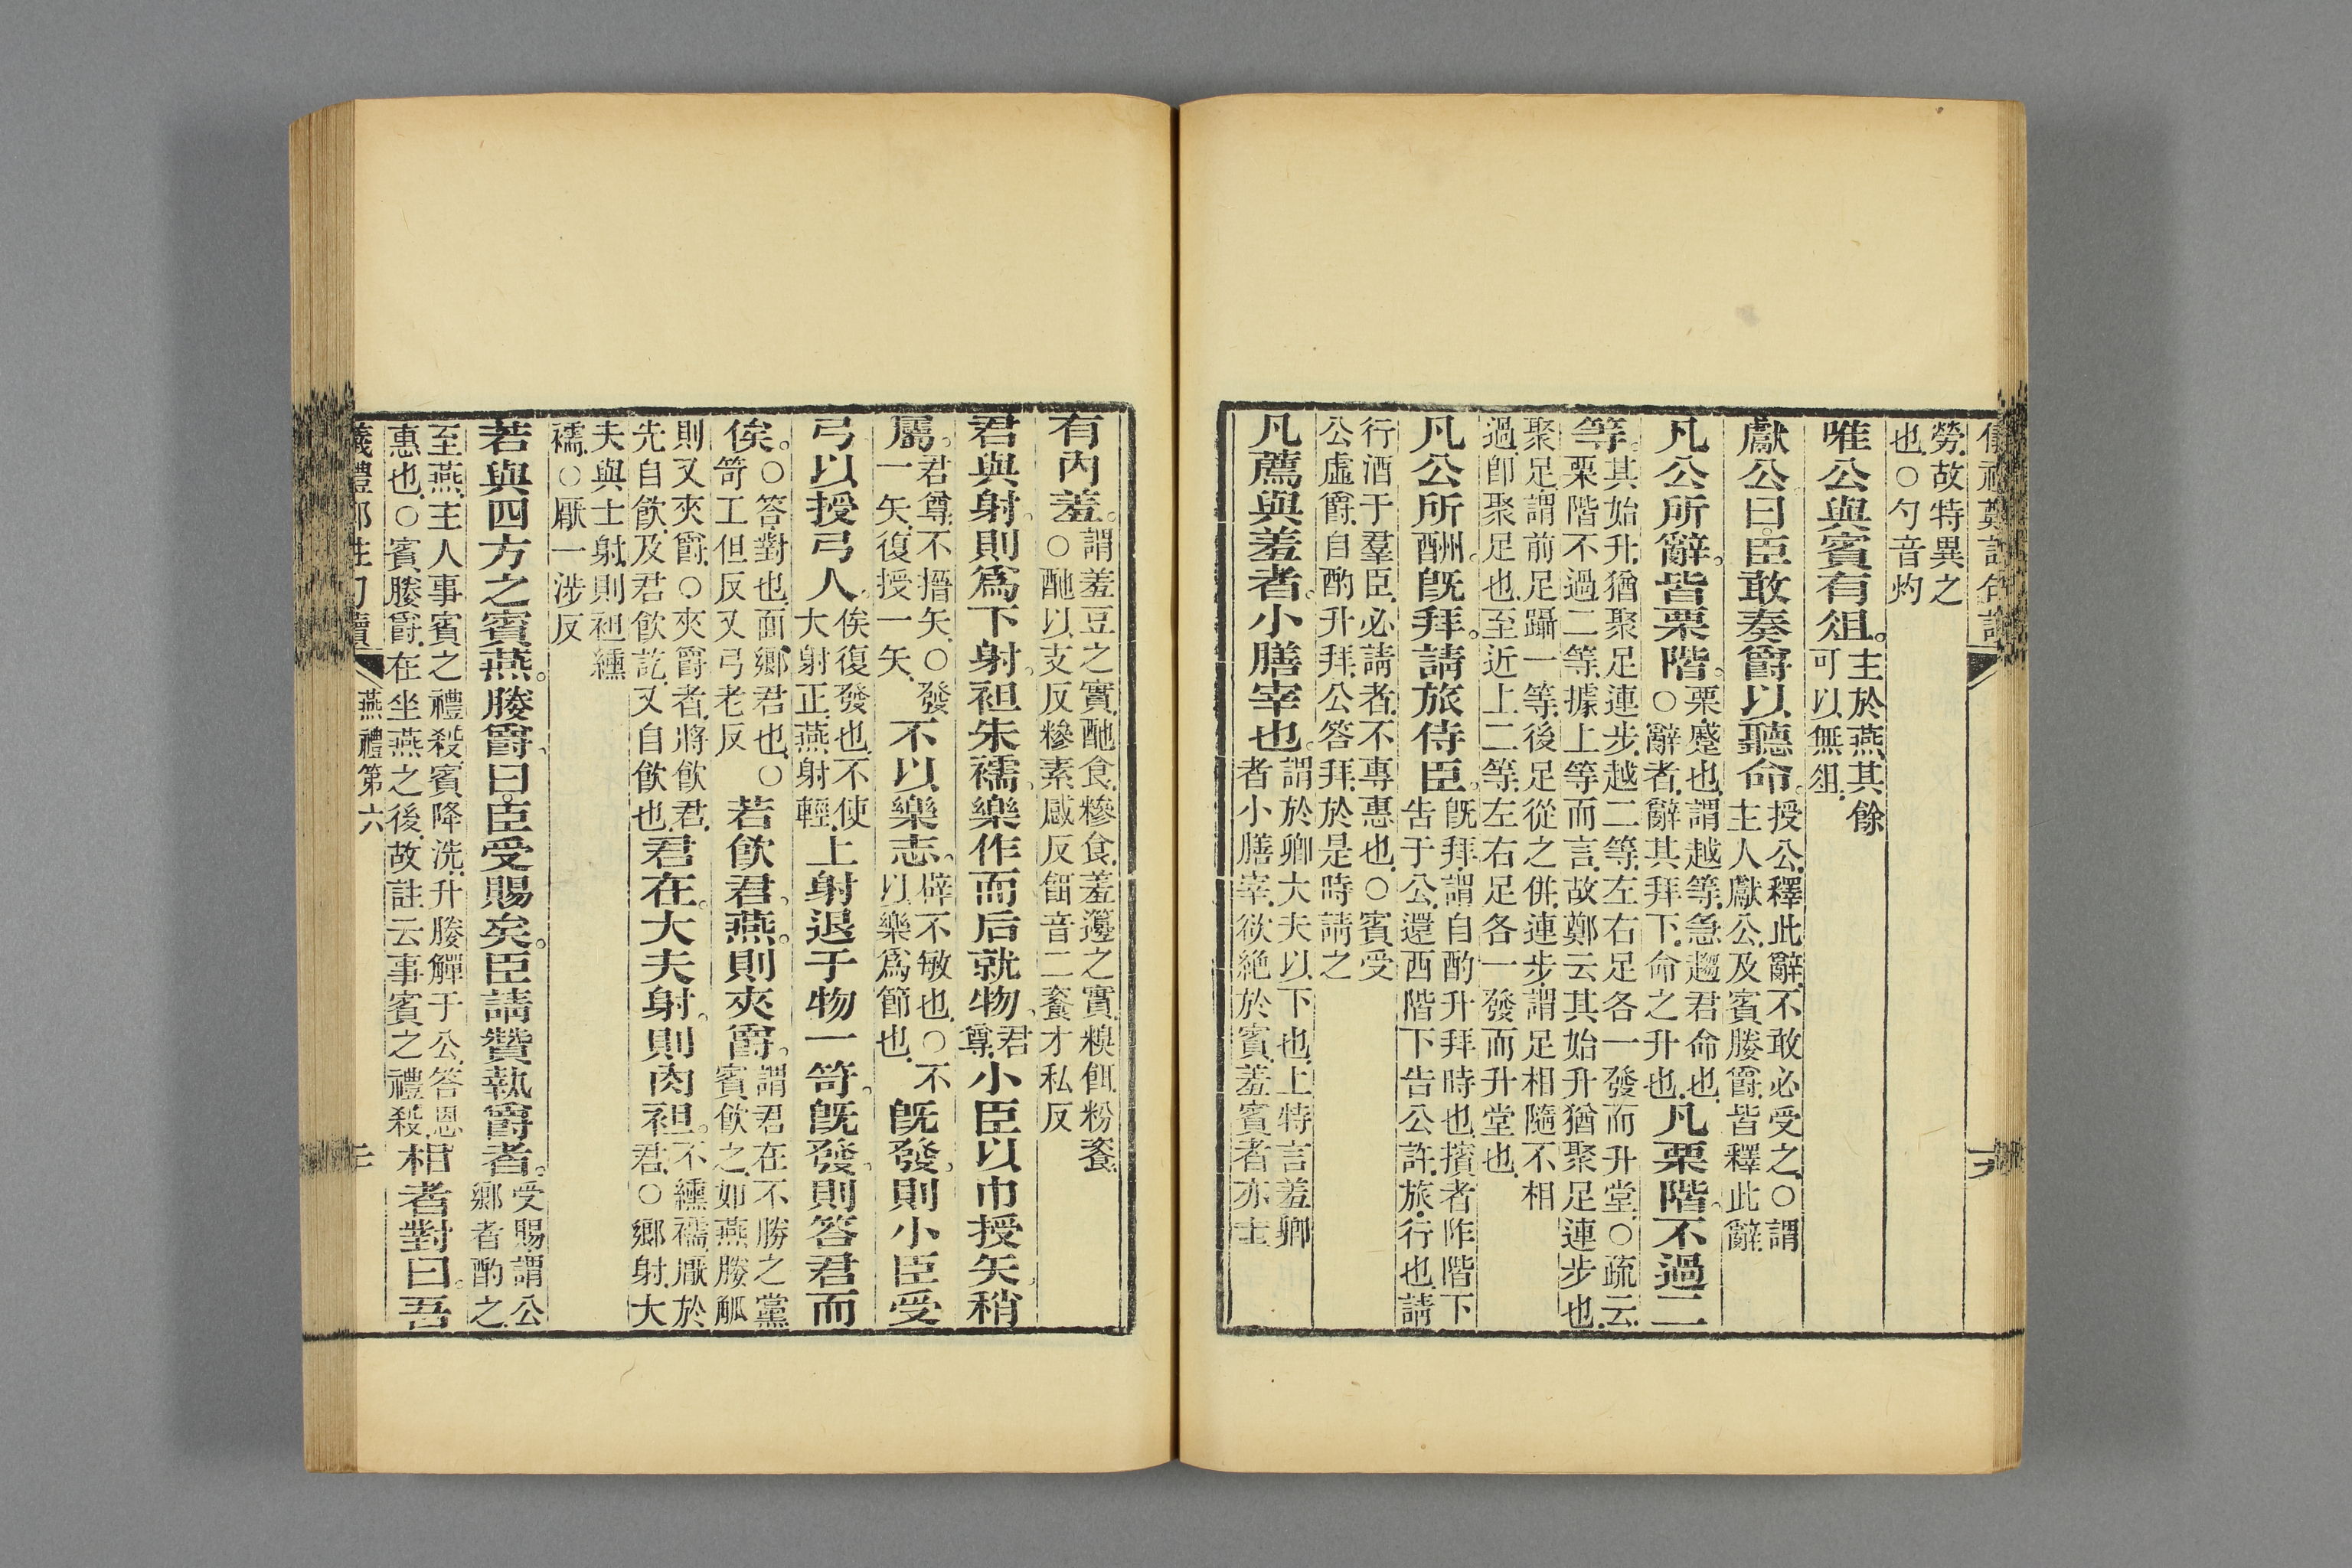 勞故特異之
也○勺音灼
唯公與賓有俎。主於燕其餘
可以無俎
獻公曰臣敢奏爵以聽命。授公釋此辭不敢必受之○謂
主人獻公及賓媵爵皆釋此辭
凡公所辭。皆栗階。栗蹙也謂越等急趨君命也
○辭者辭其拜下命之升也凡栗階。不過二
等。其始升猶聚足連步越二等左右足各一發而升堂○疏云
栗階不過二等據上等而言故鄭云其始升猶聚足連步也
聚足謂前足躡一等後足從之併連步謂足相隨不相
過卽聚足也至近上二等左右足各一發而升堂也
凡公所酬。旣拜。請旅侍臣。旣拜謂自酌升拜時也擯者阼階下
告于公還西階下告公許旅行也請
行酒于羣臣必請者不專惠也○賓受
公虛爵自酌升拜公答拜於是時請之
凡薦與羞者。小膳宰也。謂於卿大夫以下也上特言羞卿
者小膳宰欲絶於賓羞賓者亦士
有內羞。謂羞豆之實酏食糝食羞籩之實糗餌粉餈
○酏以支反糝素感反餌音二餈才私反
君與射。則爲下射。袒朱襦。樂作而后就物。君
尊小臣以巾授矢。稍
屬。君尊不搢矢○發
一矢復授一矢不以樂志。辟不敏也○不
以樂爲節也旣發。則小臣受
弓以授弓人。俟復發也不使
大射正燕射輕上射退于物一笴。旣發。則答君而
俟。○答對也面鄉君也○
笴工但反又弓老反若飮君。燕。則夾爵。謂君在不勝之黨
賓飮之如燕媵觚
則又夾爵○夾爵者將飮君
先自飮及君飮訖又自飮也君在。大夫射。則肉袒。不纁襦厭於
君○鄉射大
夫與士射則袒纁
襦○厭一涉反
若與四方之賓燕。媵爵。曰臣受賜矣。臣請贊執爵者。受賜謂公
鄉者酌之
至燕主人事賓之禮殺賓降洗升媵觶于公答恩
惠也○賓媵爵在坐燕之後故註云事賓之禮殺相者對曰。吾
燕禮第六